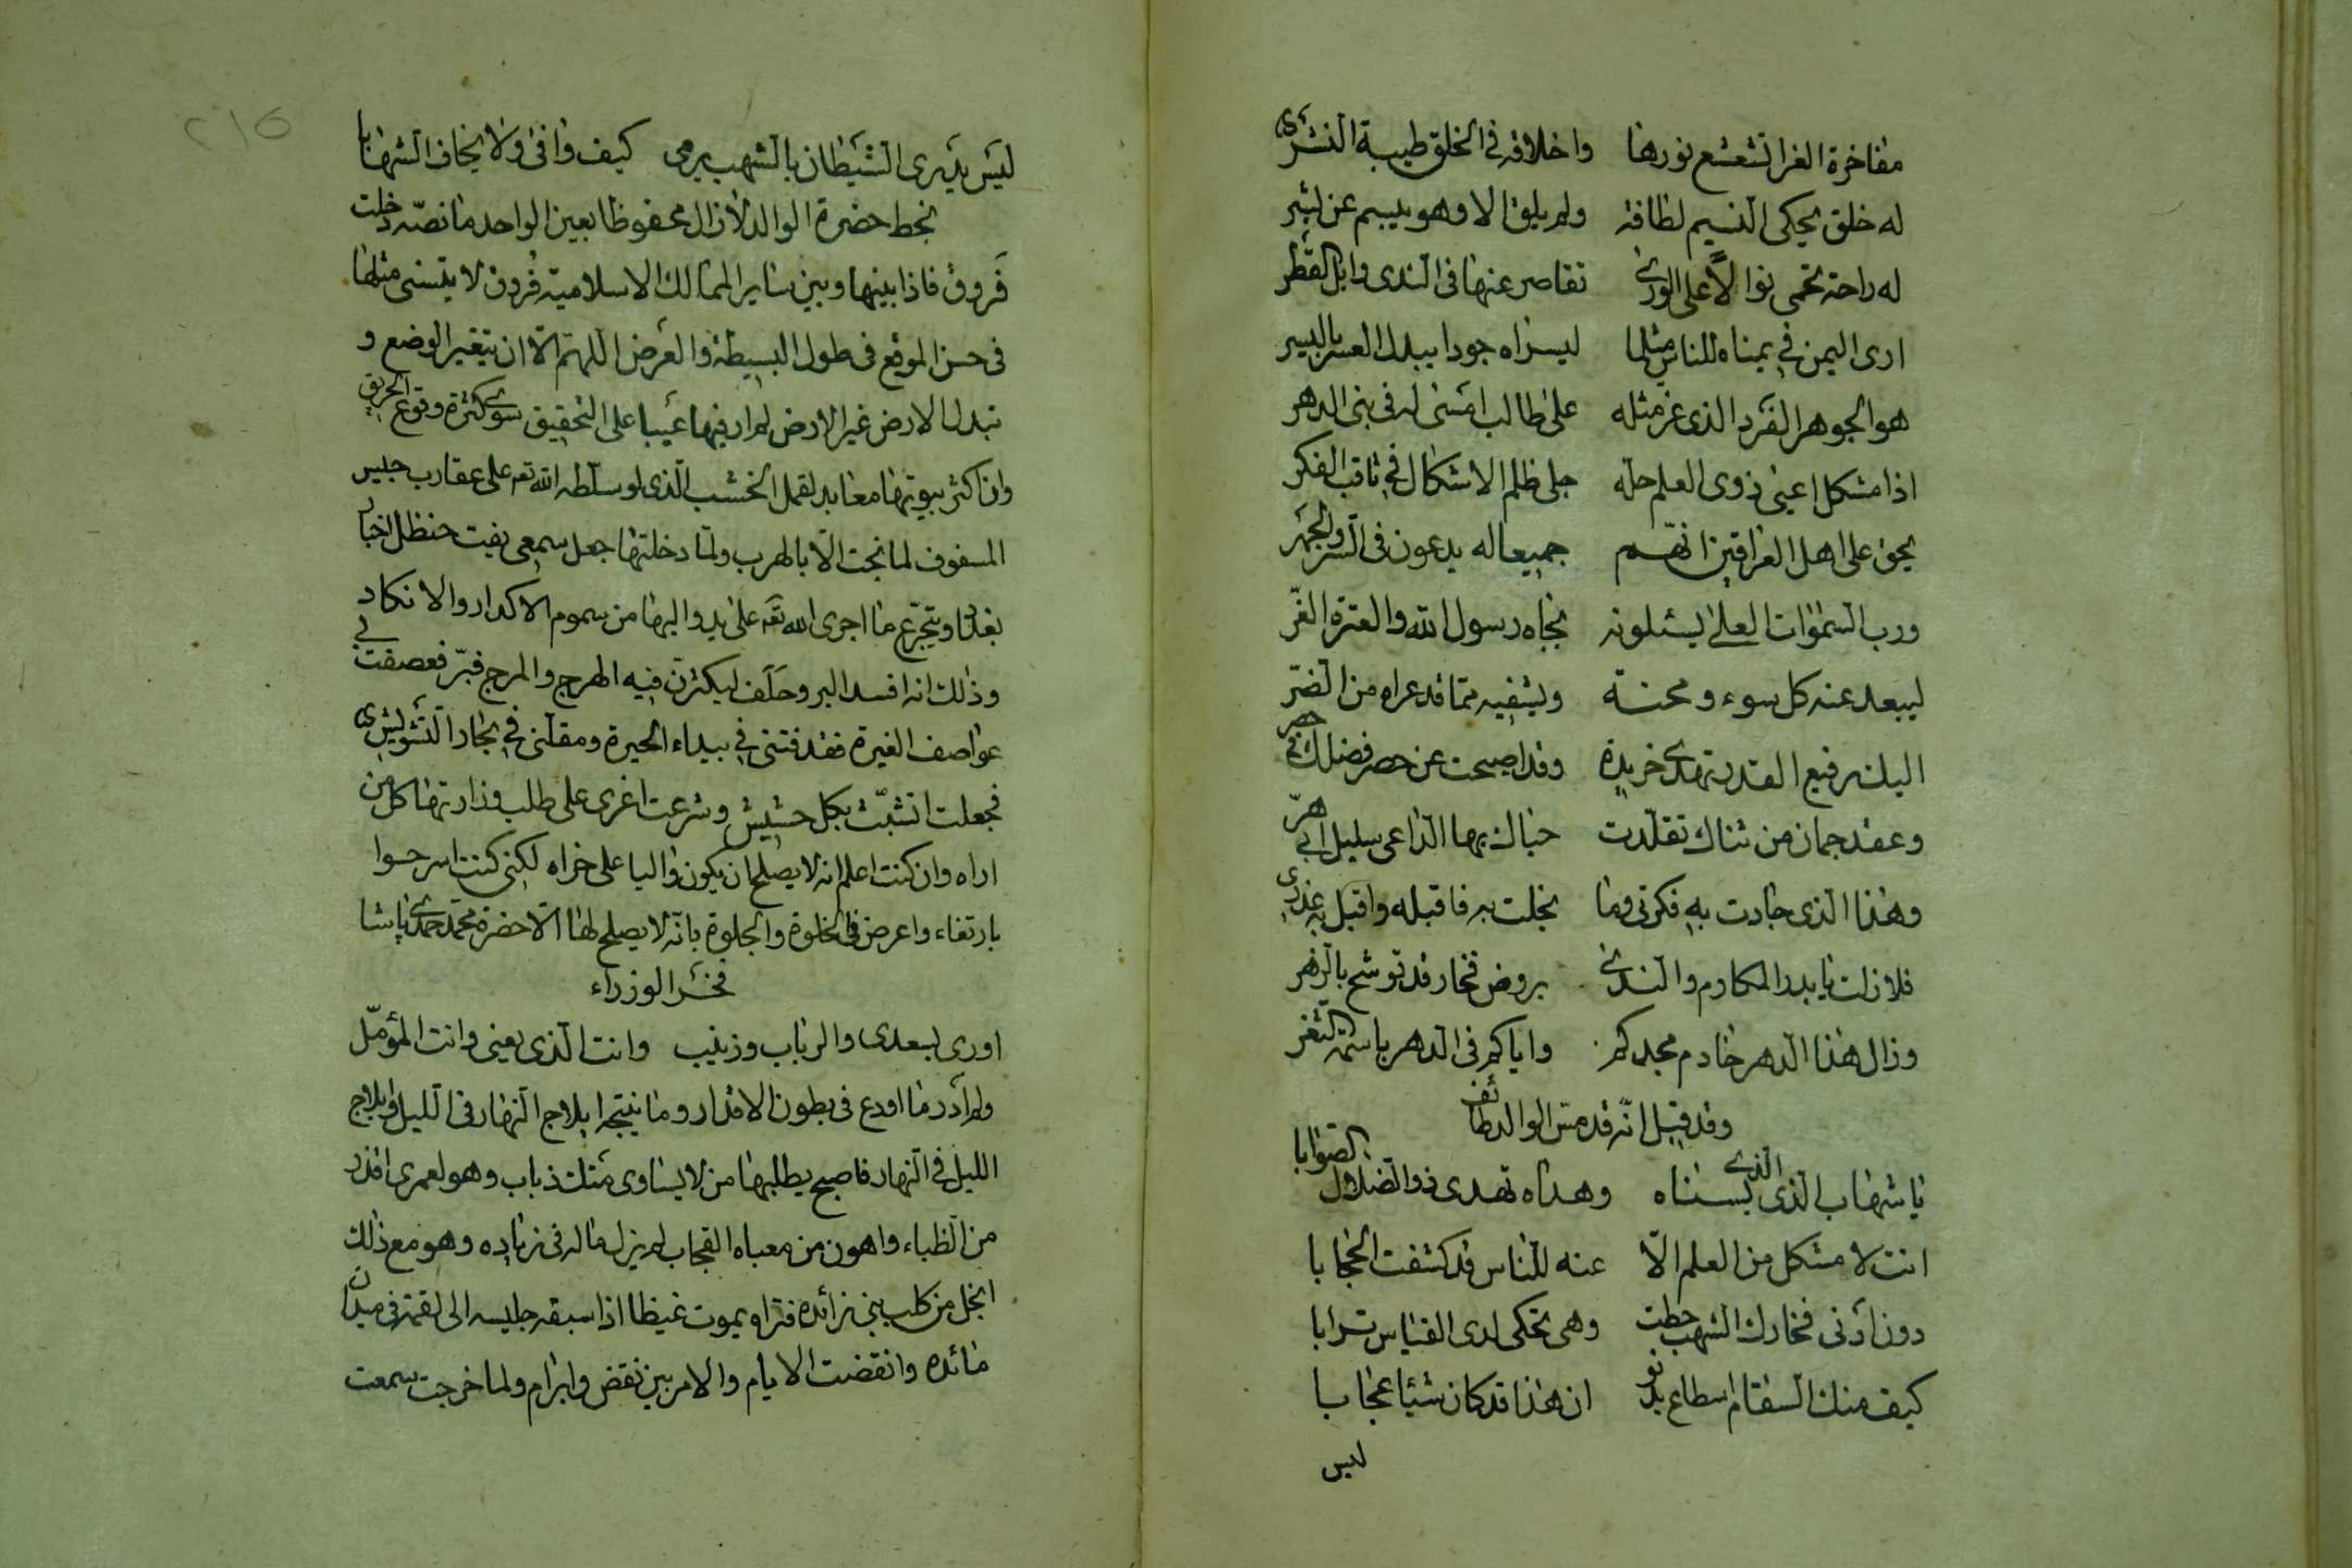 مفاخرة الغرا تشعشع نورها واخلاقه في الخلق طيبة النشرى
له خلق يحكى النسيم لطافة ولم يلق الا وهو يبسم عن بشر
له راحة تخمى نوالاً على الورى تقاصر عنها فى الندى وابل القطر
ارى اليمن في يمناه للناس مثلما ليسراه جودا يبدل العسر باليسر
هو الجوهر الفرد الذى عز مثله على طالب امسى له فى بنى الدهر
اذا مشكل اعيى ذوى العلم حله جلى ظلم الاشكال في ثاقب الفكر
يحق على اهل العراقين انهم جميعا له يدعون فى السر والجهر
ورب السموات العلى يسئلونه بجاه رسول الله والعترة الغرّ
ليبعد عنه كل سوء ومحنة ويشفيه مما قد عراه من الضرّ
اليك رفيع القدر تهدى خريدة وقد اصبحت عن حصر فضلك في حصر
وعقد جمان من ثناك تقلّدت حباك بها الداعى سليل ابى هرّ
وهذا الذى جادت به فكرتى وما بخلت به فاقبله واقبل به عذرى
فلا زلت يا بدر المكارم والندى بروض فخار قد توشح بالزهر
وزال هذا الدهر خادم مجدكم واياكم فى الدهر باسمة الثغر
وقد قيل انّه قد مس الوالد طائف
يا شهاب الذى الذى بسناه وهداه تهدى ذو الضلال الصوابا
انت لا مشكل من العلم الّا عنه للناس قد كشفت الحجابا
دون ادنى فخارك الشهب حطت وهى تحكى لدى القياس ترابا
كيف منك السقام اسطاع يدنو ان هذا قد كان شيئا عجابا
ليس
٢١٥
ليس يدرى الشيطان بالشهب يرمى كيف وافى ولا يخاف الشهابا
بخط حضرة الوالد لازال محفوظا بعين الواحد ما نصّه دخلت
فَروق فاذا بينها وبين ساير الممالك الاسلامية فُروق لا يتسنى مثلها
فى حسن الموقع فى طول البسيطة والعرض اللهم الّا ان يتغير الوضع و
تبدل الارض غير الارض لم ار فيها عيبا على التحقيق سوى كثرة وقوع الحريق
وان اكثر بيوتها معابد لقمل الخشب الّذى لو سلّطه الله تعه على عقارب جليس
المسفوف لما نجت الّا بالهرب ولمّا دخلتها جعل سمعى يفت حنظل اخبار
بغداد ويتجرّع ما اجرى الله تعه على يد واليها من سموم الاكدار والانكاد
وذلك انه افسد البر وحلف ليكثرن فيه الهرج والمرج فبرّ فعصفت بي
عواصف الغيرة فقذفتنى في بيداء الحيرة ومقلتنى في بحار التشويش
فجعلت اتشبّث بكل حشيش وشرعت اغرى على طلب وزارتها كل من
اراه وان كنت اعلم انه لا يصلح ان يكون واليا على خراه لكنى كنت اسر حسوا
بارتغاء واعرض فى الخلوة والجلوة بانّه لا يصلح لها الّا حضرة محمد حمدى پاشا
فخر الوزراء
اورى بسعدى والرباب وزينب وانت الّذى يعنى وانت المؤمّل
ولم ادر ما اودع فى بطون الاقدار وما ينتجه ايلاج النهار فى الليل وايلاج
الليل في النهار فاصبح يطلبها من لا يساوى متك ذباب وهو لعمرى اقذر
من الظباء واهون من معباه القحاب لم يزل ماله فى زياده وهو مع ذلك
ابخل من كلب بنى زائدة فتراه يموت غيظا اذا سبقه جليسه الى لقمة فى ميدان
مائده وانقضت الايام والامر بين نقض وابرام ولما خرجت سمعت